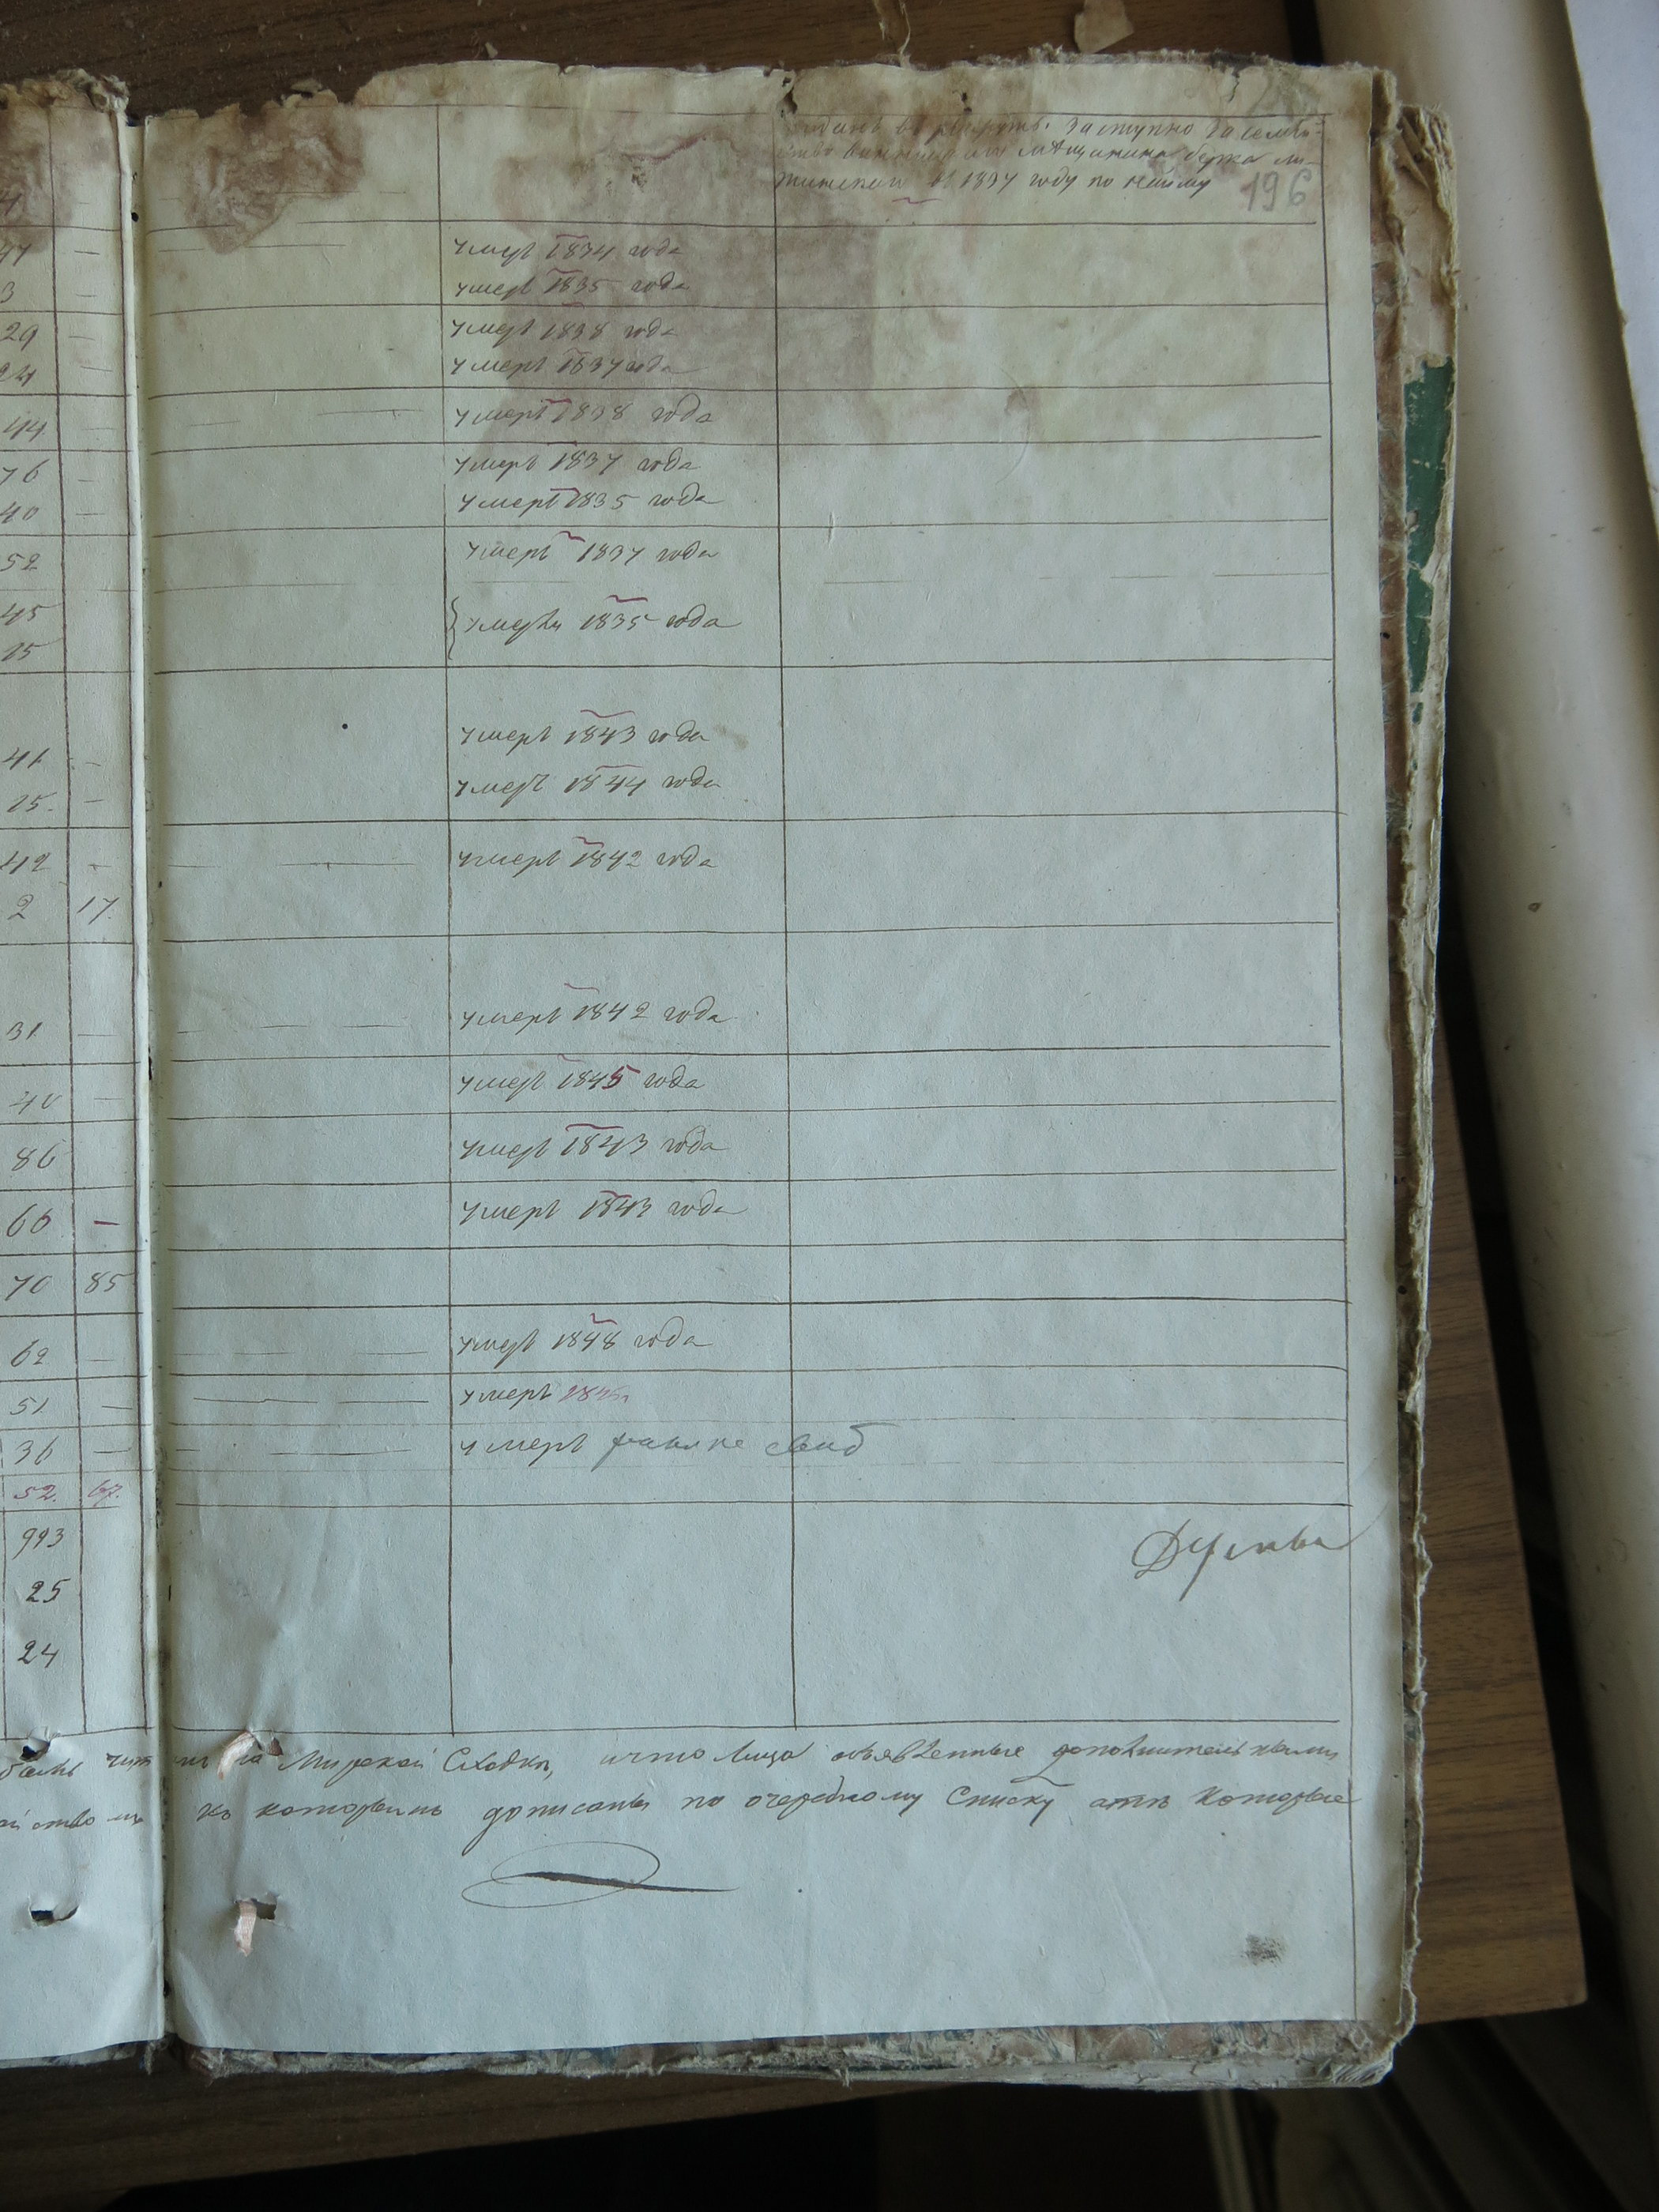 въ рекруты заступно за семей-
ство мѣщанина берка
1837 году по найму
196
4
47 —
умеръ 1834 года
3 —
умеръ 1835 года
29 —
умеръ 1838 года
24 —
умеръ 1837 года
44 —
умеръ 1838 года
76 —
умеръ 1837 года
40 —
умеръ 1835 года
52
умеръ 1837 года
45
умерли 1835 года
15
41 —
умеръ 1843 года
15. —
умеръ 1844 года
42 —
умеръ 1842 года
2 17.
31 —
умеръ 1842 года
40 —
умеръ 1845 года
86
умеръ 1843 года
66 —
умеръ 1843 года
70 85
62 —
умеръ 1848 года
51 —
умеръ
36 —
умеръ
52. 67.
993
25
24
на Мирской Сходкѣ, и что лица объявленные дополнительными
къ которымъ дописаны по очередному Списку отъ которые